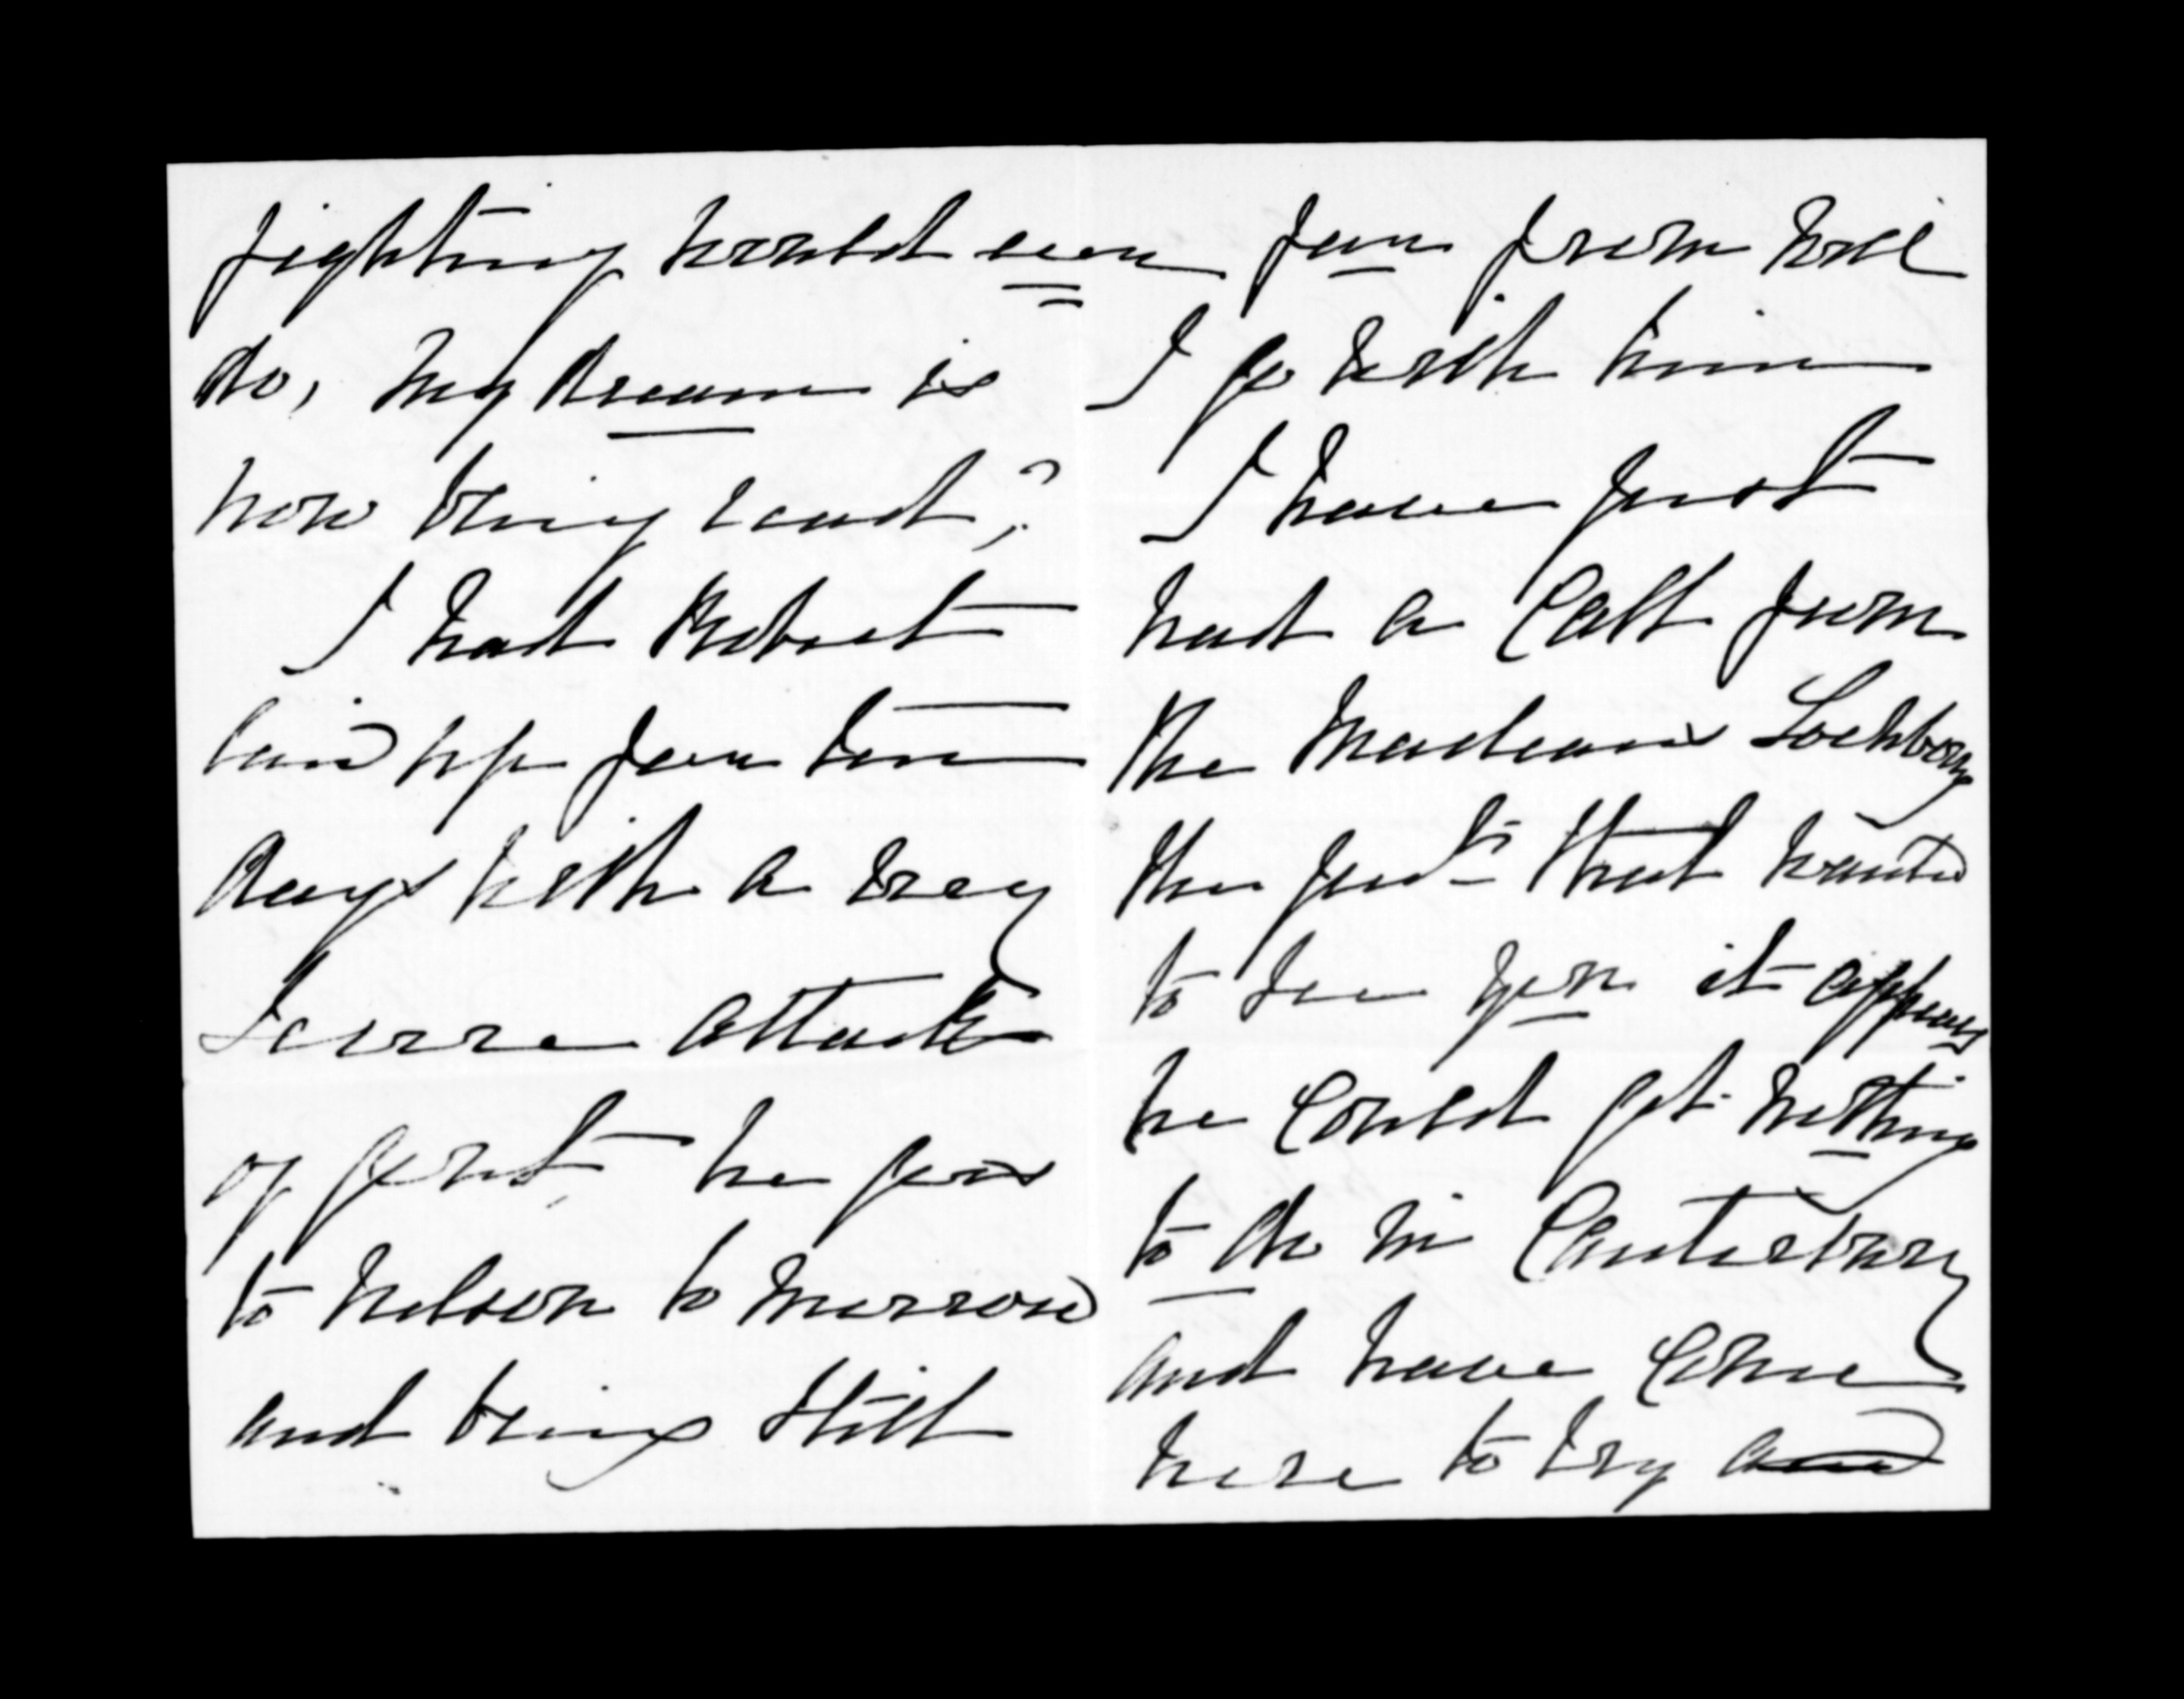 fighting would ever
do, my dream is
now being read,?
I had Robert
laid up for ten
days with a very
severe attack
of gout he goes
to Nelson to morrow
and being still
far from well
I go with him
I have just
had a call from
the Macleans Lochbuy
the that wants
to see you it appears
he could get nothing
to do in Canterbury
and have come
here to try and